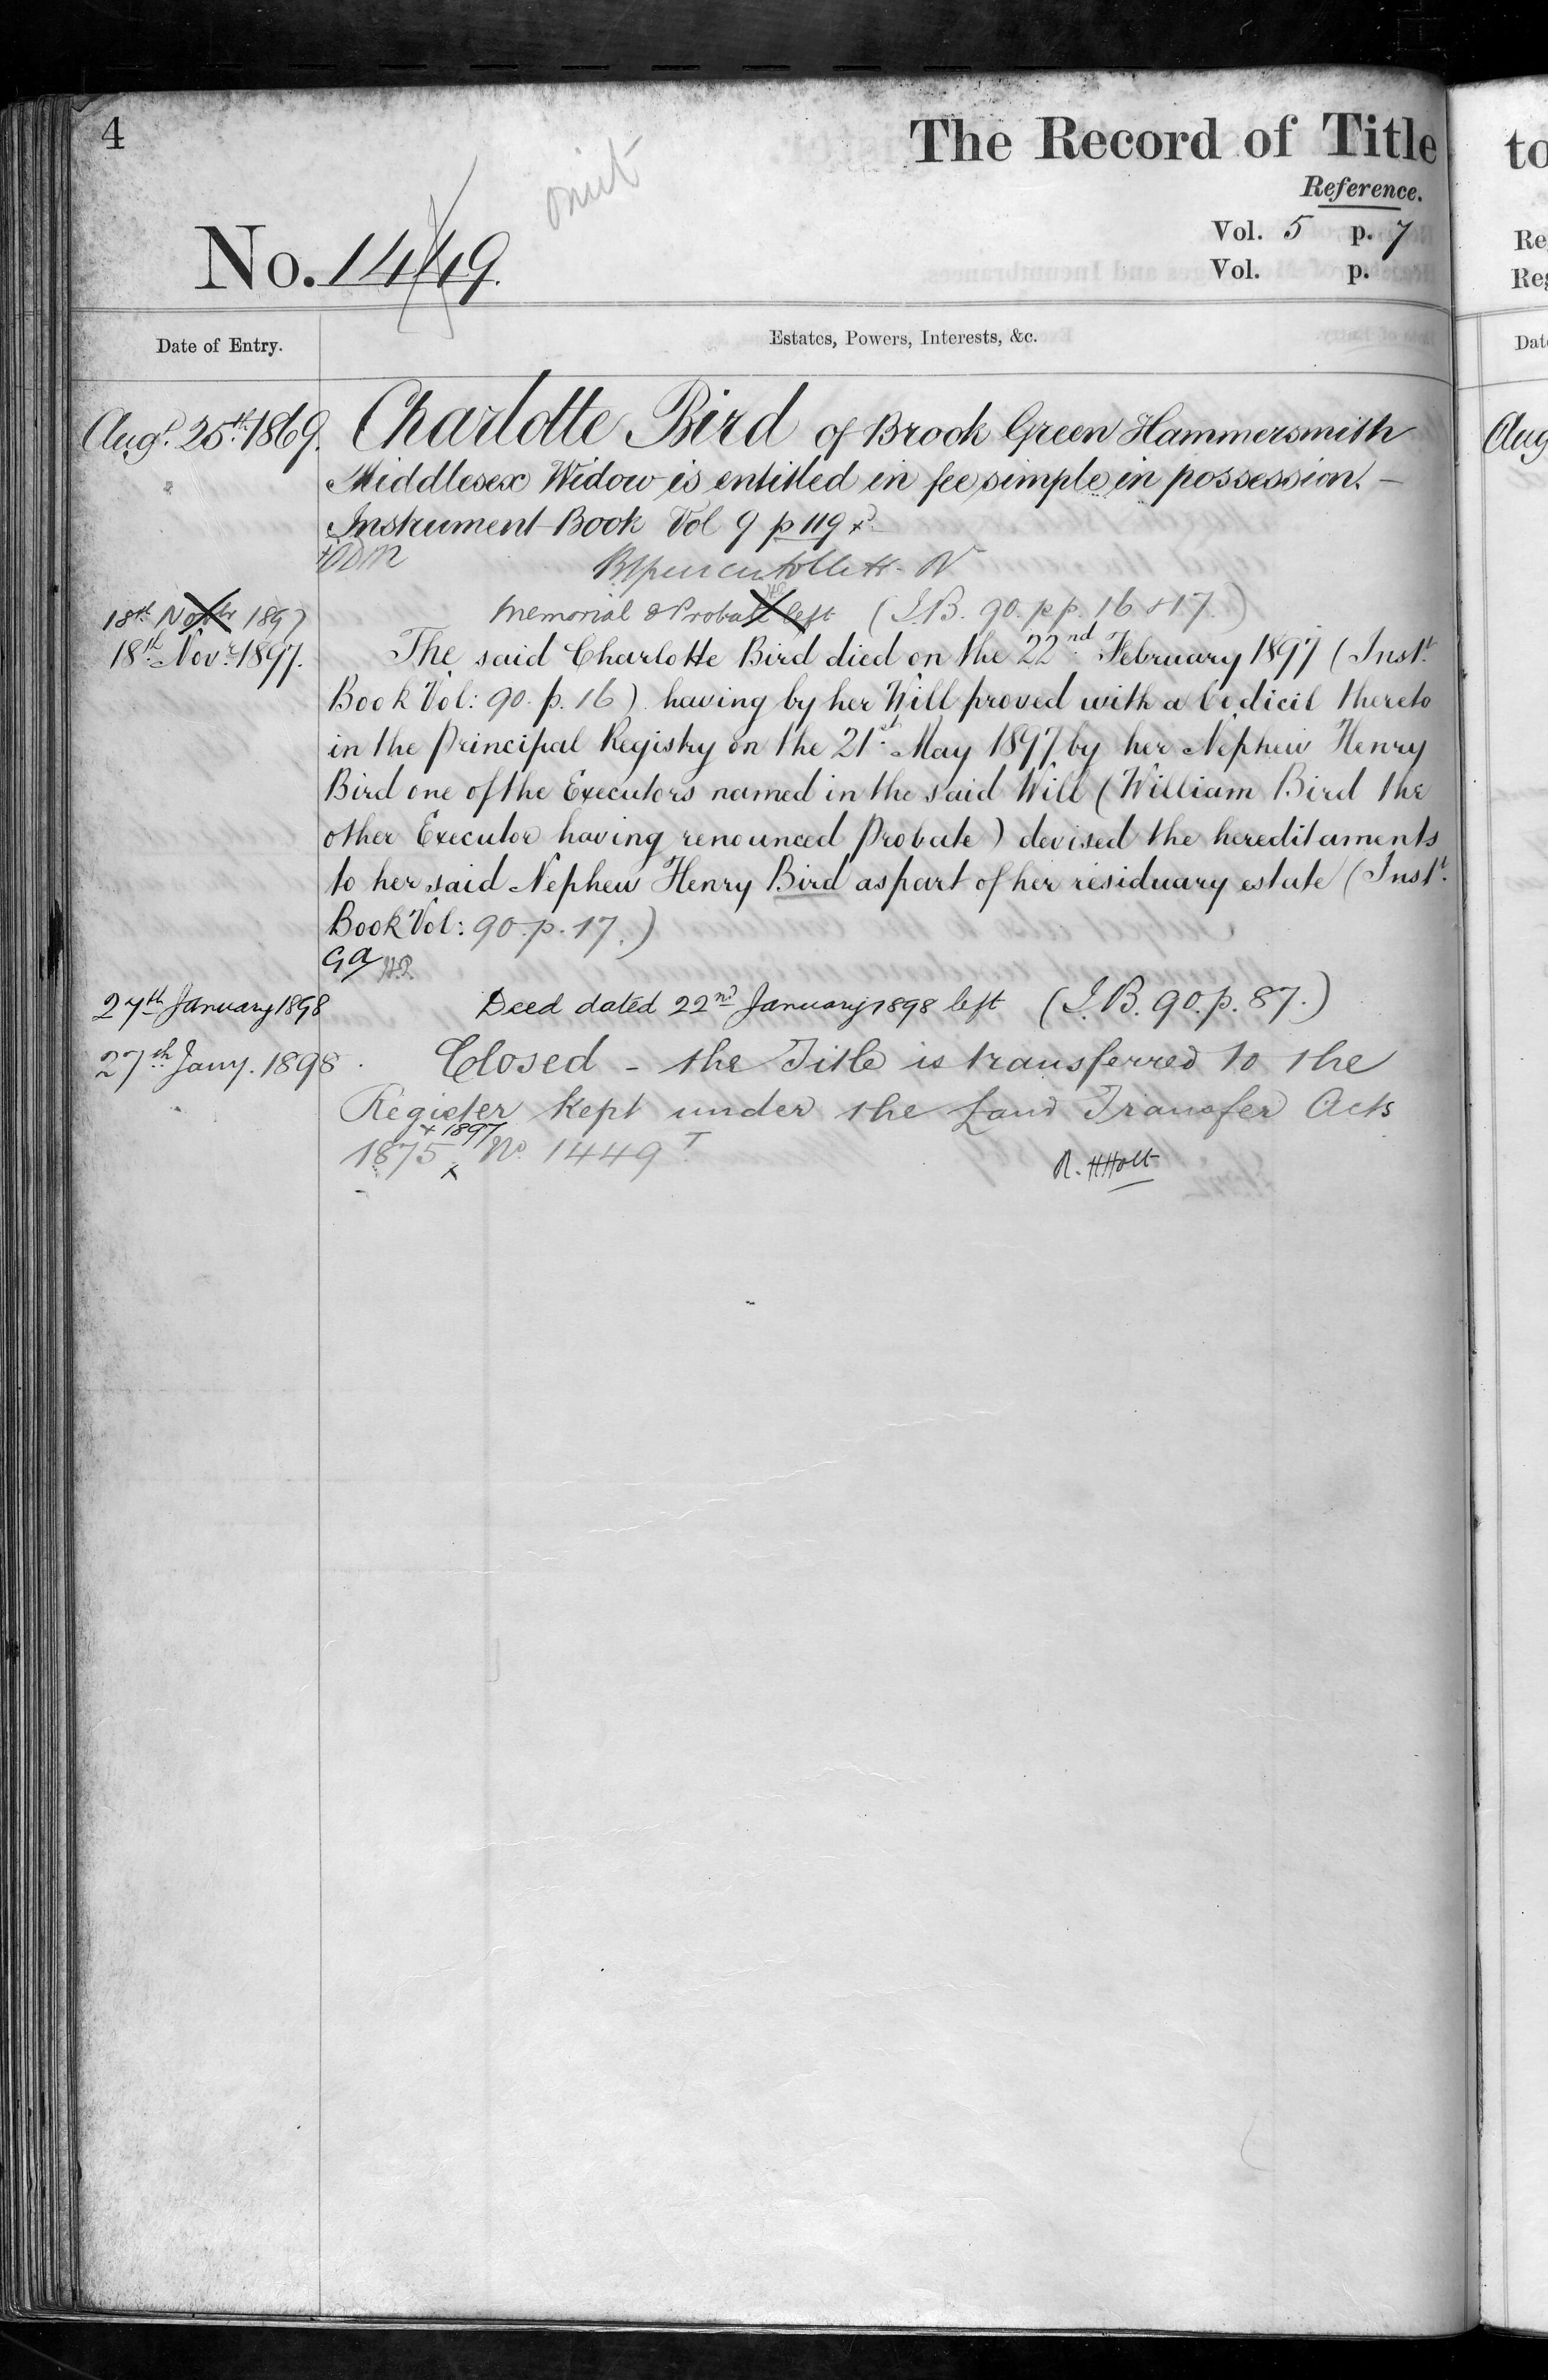 4
omit
The Record of Title
Reference.
Vol. 5 p. 7
Vol. p.
No. 1449.
Date of Entry.
Estates, Powers, Interests, &c.
Augt. 25th. 1869. Charlotte Bird of Brook Green Hammersmith
Middlesex Widow is entitled in fee simple in possession. –
Instrument Book Vol 9 p 119
18th Novbr 1897 Memorial & Probate left (I.B. 90. pp. 16 & 17.)
18th. Novr. 1897. The said Charlotte Bird died on the 22nd. February 1897 (Instt.
Book Vol: 90. p. 16) having by her Will proved with a Codicil thereto
in the Principal Registry on the 21st. May 1897 by her Nephew Henry
Bird one of the Executors named in the said Will (William Bird the
other Executor having renounced Probate) devised the hereditaments
to her said Nephew Henry Bird as part of her residuary estate (Instt.
Book Vol: 90. p. 17.)
27th January 1898 Deed dated 22nd January 1898 left (I.B. 90. p. 87.)
27th Jany. 1898. Closed - the Title is transferred to the
Register kept under the Land Transfer Acts
+ 1897
1875 x No. 1449 T
R. H Holt
to
Re
Reg
Dat
Aug